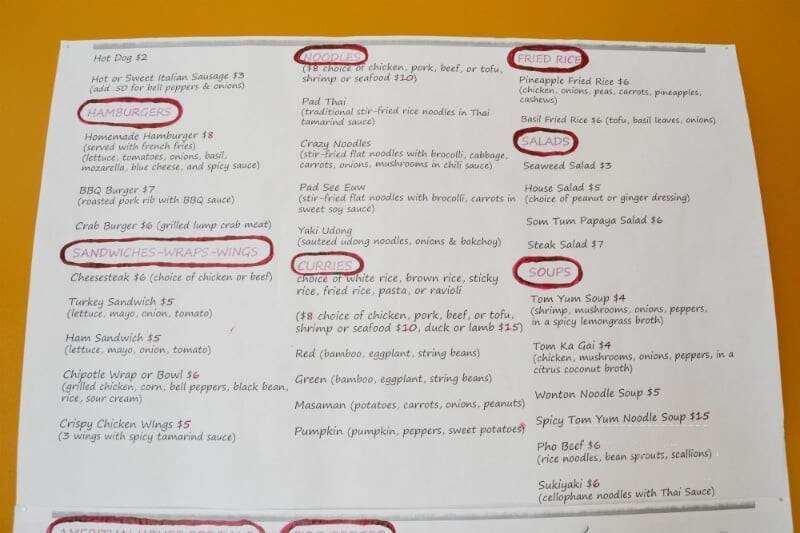 Hot Dog $2
Hot or Sweet Italian Sausage $3
(add .50 for bell peppers & onions)
HAMBURGERS
Homemade Hamburger $8
(served with french fries)
(lettuce, tomatoes, onions, basil,
mozarella, blue cheese, and spicy sauce)
BBQ Burger $7
(roasted pork rib with BBQ sauce)
Crab Burger $6 (grilled lump crab meat)
SANDWICHES-WRAPS-WINGS
Cheesesteak $6 (choice of chicken or beef)
Turkey Sandwich $5
(lettuce, mayo, onion, tomato)
Ham Sandwich $5
(lettuce, mayo, onion, tomato)
Chipotle Wrap or Bowl $6
(grilled chicken, corn, bell peppers, black bean,
rice, sour cream)
Crispy Chicken WIngs $5
(3 wings with spicy tamarind sauce)
NOODLES
($8 choice of chicken, pork, beef, or tofu,
shrimp or seafood $10)
Pad Thai
(traditional stir-fried rice noodles in Thai
tamarind sauce)
Crazy Noodles
(stir-fried flat noodles with brocolli, cabbage,
carrots, onions, mushrooms in chili sauce)
Pad See Euw
(stir-fried flat noodles with brocolli, carrots in
sweet soy sauce)
Yaki Udong
(sauteed udong noodles, onions & bokchoy)
CURRIES
choice of white rice, brown rice, sticky
rice, fried rice, pasta, or ravioli
($8 choice of chicken, pork, beef, or tofu,
shrimp or seafood $10, duck or lamb $15)
Red (bamboo, eggplant, string beans)
Green (bamboo, eggplant, string beans)
Masaman (potatoes, carrots, onions, peanuts)
Pumpkin (pumpkin, peppers, sweet potatoes)
FRIED RICE
Pineapple Fried Rice $6
(chicken, onions, peas, carrots, pineapples,
cashews)
Basil Fried Rice $6 (tofu, basil leaves, onions)
SALADS
Seaweed Salad $3
House Salad $5
(choice of peanut or ginger dressing)
Som Tum Papaya Salad $6
Steak Salad $7
SOUPS
Tom Yum Soup $4
(shrimp, mushrooms, onions, peppers,
in a spicy lemongrass broth)
Tom Ka Gai $4
(chicken, mushrooms, onions, peppers, in a
citrus coconut broth)
Wonton Noodle Soup $5
Spicy Tom Yum Noodle Soup $15
Pho Beef $6
(rice noodles, bean sprouts, scallions)
Sukiyaki $6
(cellophane noodles with Thai Sauce)